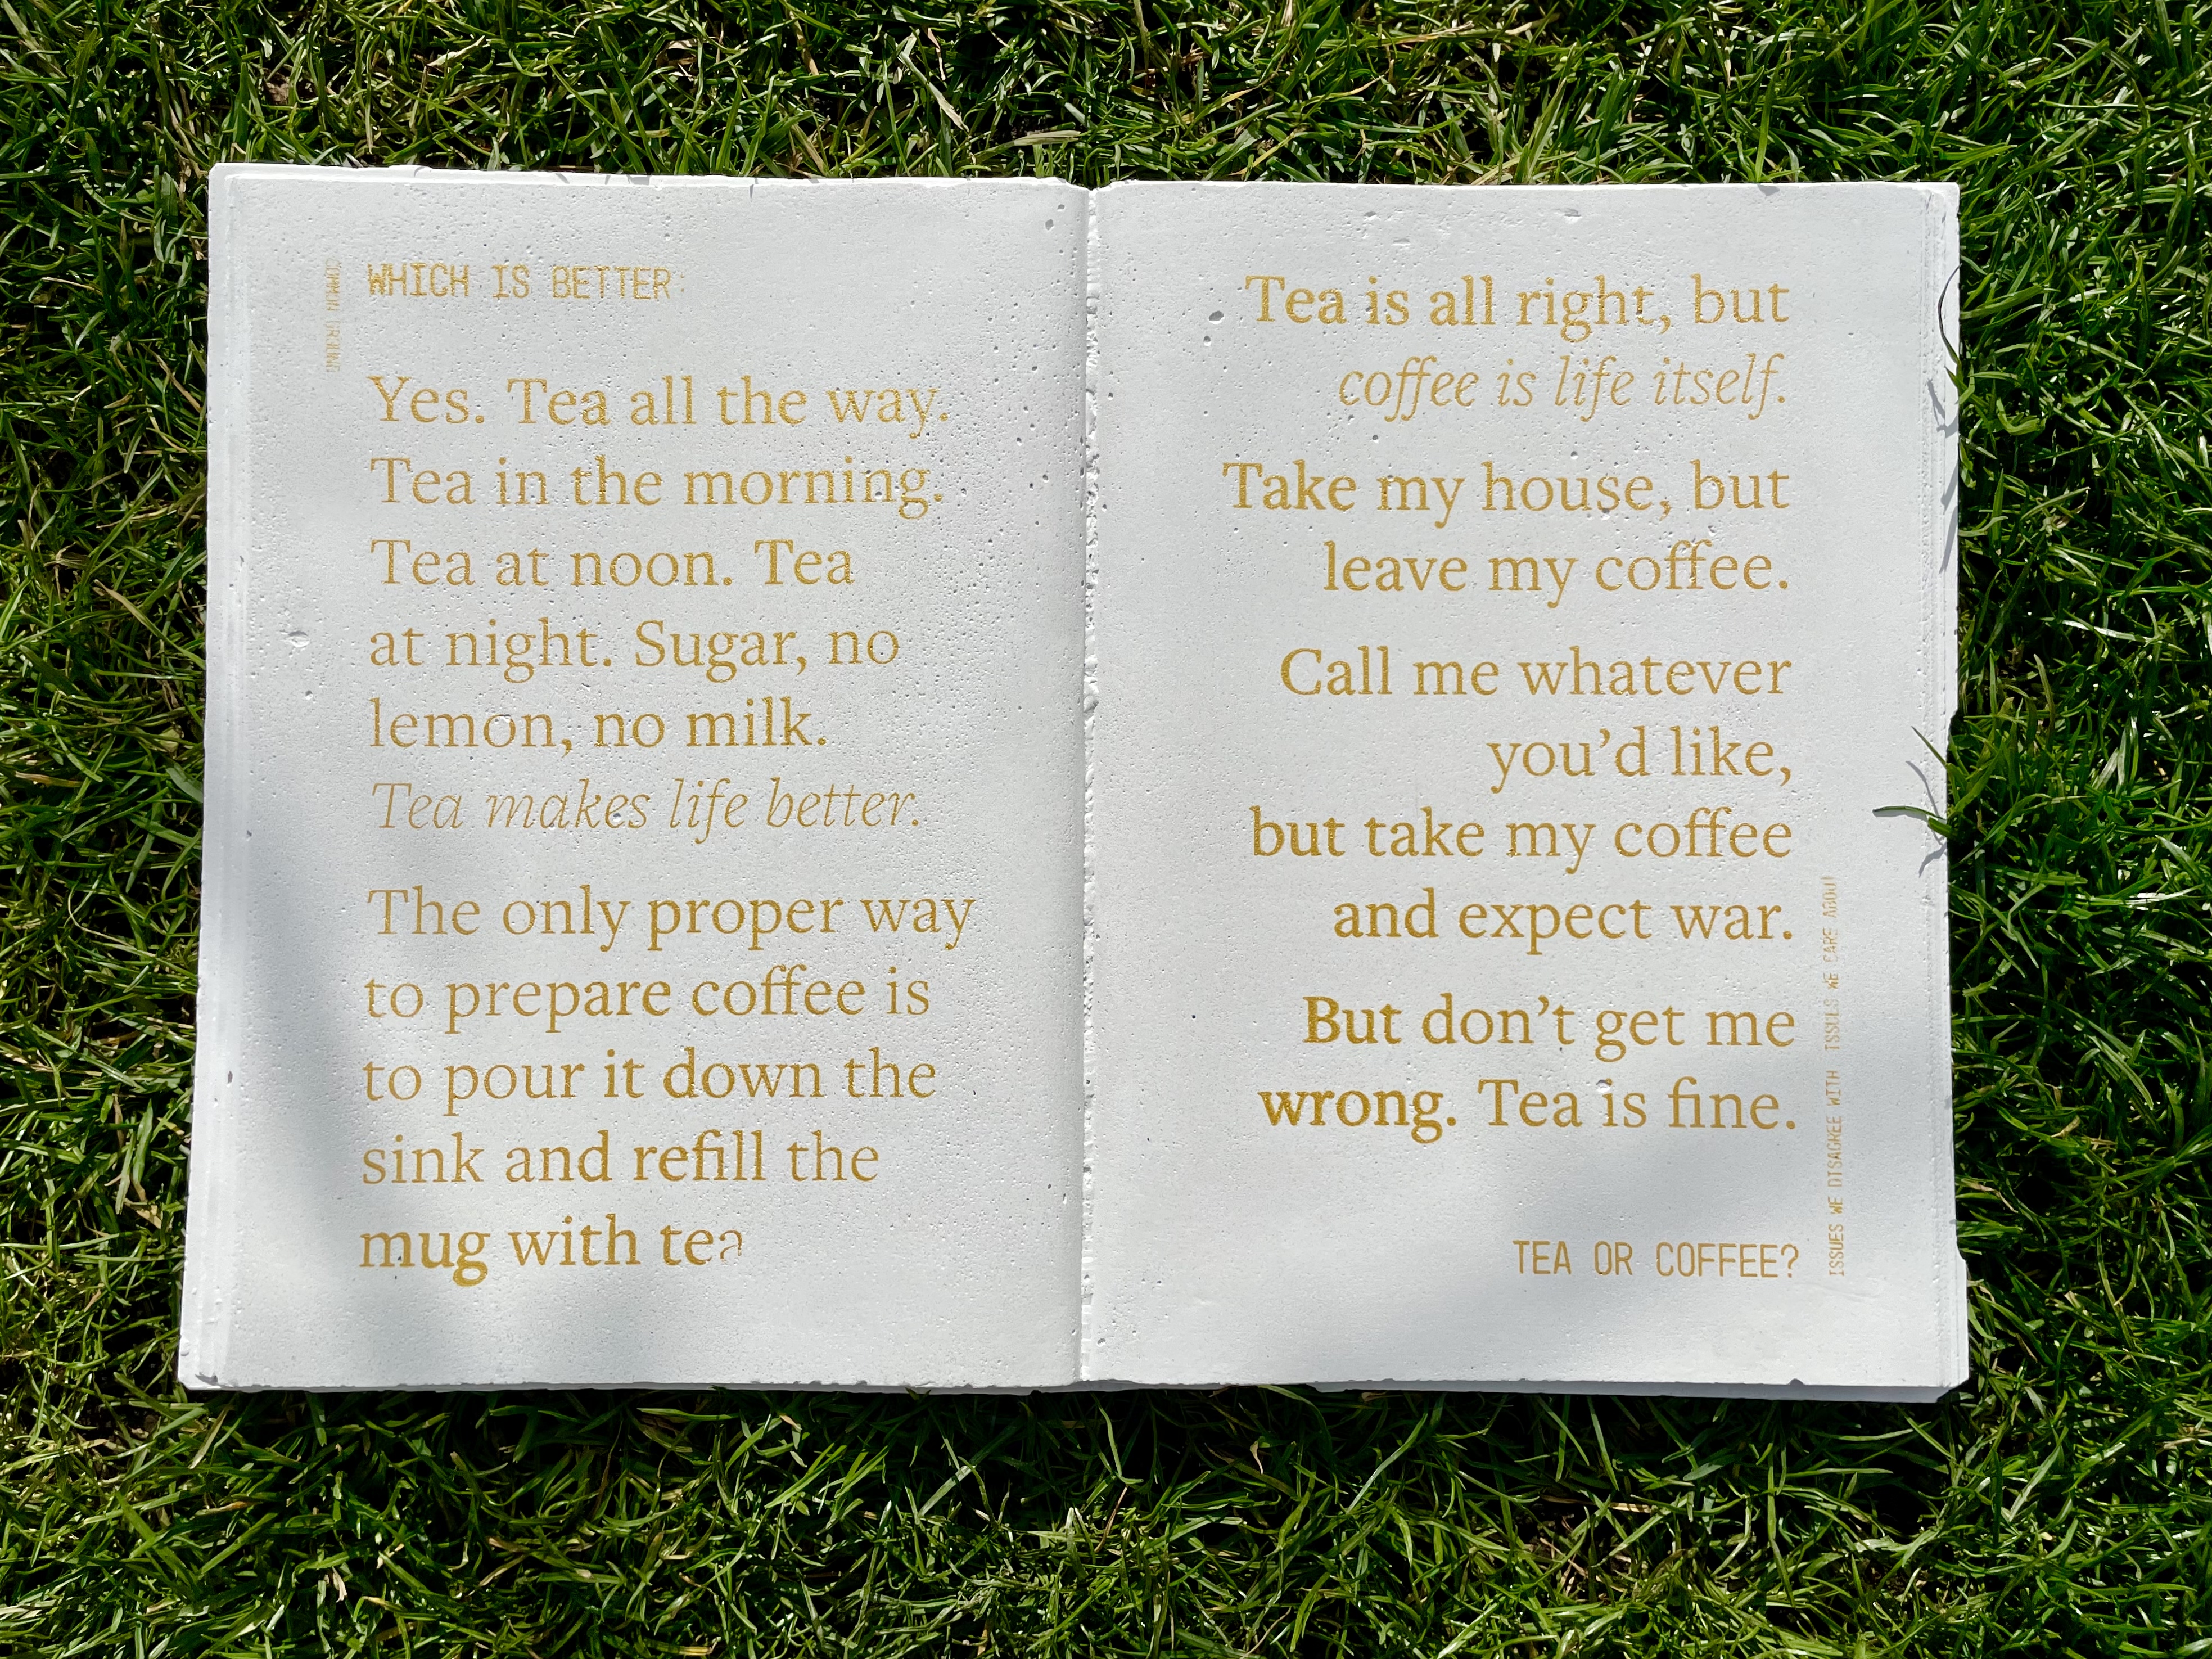 WHICH IS BETTER
COMMON GROUND
Yes. Tea all the way.
Tea in the morning.
Tea at noon. Tea
at night. Sugar, no
lemon, no milk.
Tea makes life better.
The only proper way
to prepare coffee is
to pour it down the
sink and refill the
mug with tea
Tea is all right, but
coffee is life itself.
Take my house, but
leave my coffee.
Call me whatever
you’d like,
but take my coffee
and expect war.
But don’t get me
wrong. Tea is fine.
TEA OR COFFEE?
ISSUES WE DISAGREE WITH ISSUES WE CARE ABOUT